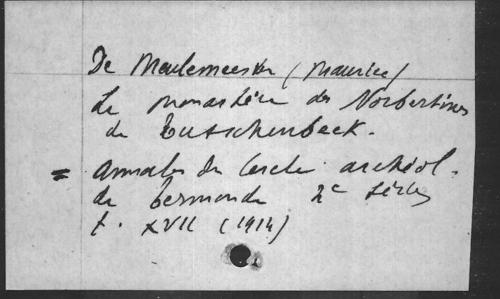 De Meulemeester (Maurice)
Le monastère des Norbertines
de Tusschenbeck.
= Annales du Cercle archéol.
de Termonde 2e série
t. XVII (1914)